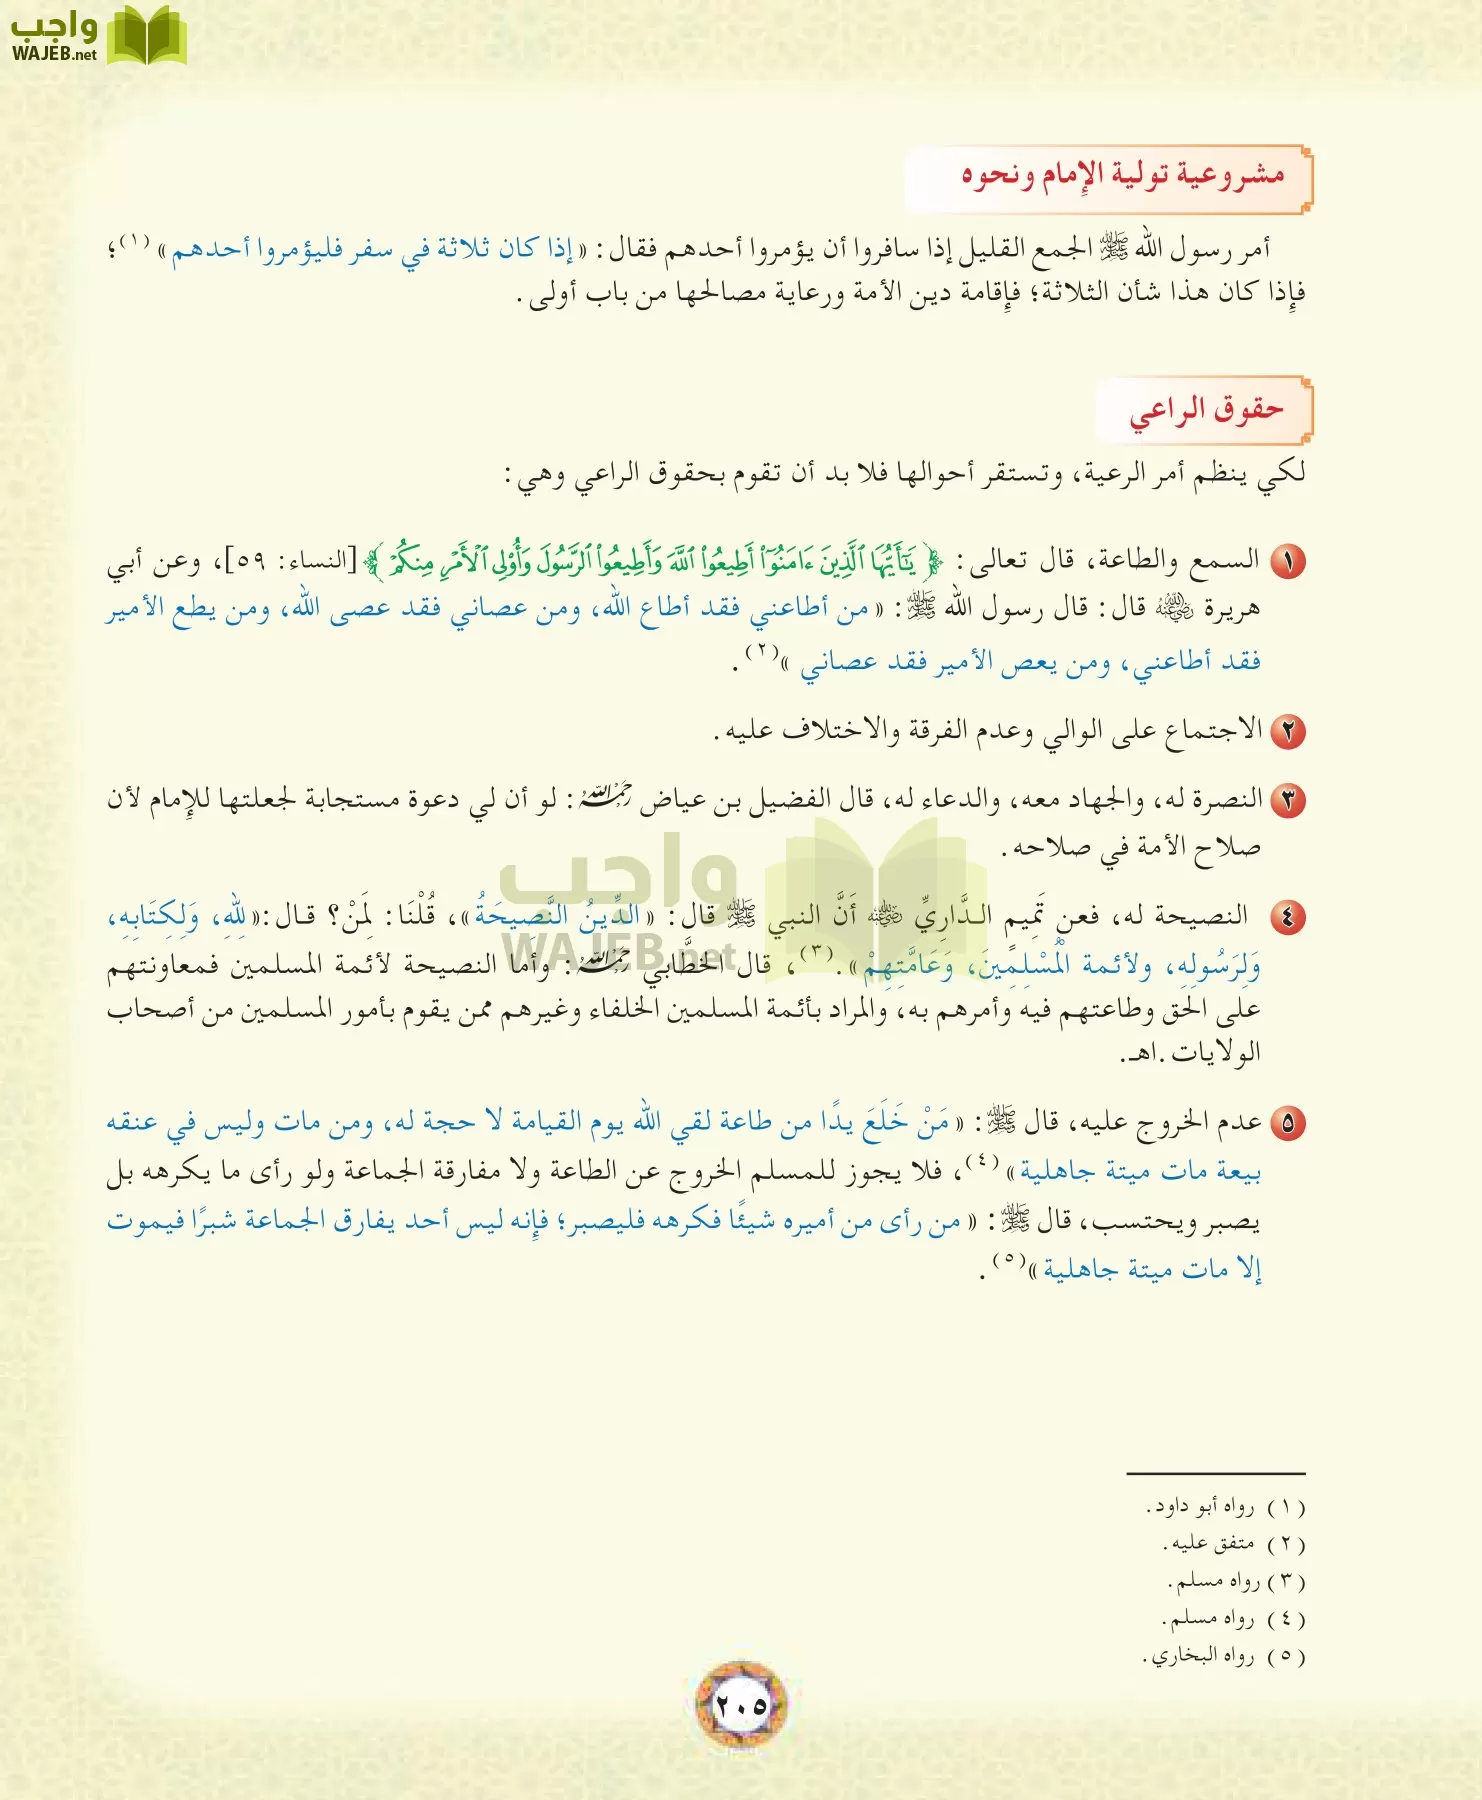 واجب
WAJEB.net
مشروعية تولية الإمام ونحوه
أمر رسول الله ﷺ الجمع القليل إذا سافروا أن يؤمروا أحدهم فقال: «إذا كان ثلاثة في سفر فليؤمروا أحدهم» (١)؛
فإذا كان هذا شأن الثلاثة؛ فإقامة دين الأمة ورعاية مصالحها من باب أولى.
حقوق الراعي
لكي ينظم أمر الرعية، وتستقر أحوالها فلا بد أن تقوم بحقوق الراعي وهي:
١ السمع والطاعة، قال تعالى: ﴿يَٰٓأَيُّهَا ٱلَّذِينَ ءَامَنُوٓاْ أَطِيعُواْ ٱللَّهَ وَأَطِيعُواْ ٱلرَّسُولَ وَأُوْلِى ٱلْأَمْرِ مِنكُمْ﴾ [النساء: ٥٩]، وعن أبي
هريرة رضي الله عنه قال: قال رسول الله ﷺ: «من أطاعني فقد أطاع الله، ومن عصاني فقد عصى الله، ومن يطع الأمير
فقد أطاعني، ومن يعص الأمير فقد عصاني»(٢).
٢ الاجتماع على الوالي وعدم الفرقة والاختلاف عليه.
٣ النصرة له، والجهاد معه، والدعاء له، قال الفضيل بن عياض رحمه الله: لو أن لي دعوة مستجابة لجعلتها للإمام لأن
صلاح الأمة في صلاحه.
٤ النصيحة له، فعن تَمِيمٍ الدَّارِيِّ رضي الله عنه أَنَّ النبي ﷺ قال: «الدِّينُ النَّصِيحَةُ»، قُلْنَا: لِمَنْ؟ قال:«لِلهِ، وَلِكِتَابِهِ،
وَلِرَسُولِهِ، ولأئمة الْمُسْلِمِينَ، وَعَامَّتِهِمْ».(٣)، قال الخطَّابي رحمه الله: وأما النصيحة لأئمة المسلمين فمعاونتهم
على الحق وطاعتهم فيه وأمرهم به، والمراد بأئمة المسلمين الخلفاء وغيرهم ممن يقوم بأمور المسلمين من أصحاب
الولايات .اهـ.
٥ عدم الخروج عليه، قال ﷺ: «مَنْ خَلَعَ يدًا من طاعة لقي الله يوم القيامة لا حجة له، ومن مات وليس في عنقه
بيعة مات ميتة جاهلية»(٤)، فلا يجوز للمسلم الخروج عن الطاعة ولا مفارقة الجماعة ولو رأى ما يكرهه بل
يصبر ويحتسب، قال ﷺ: «من رأى من أميره شيئًا فكرهه فليصبر؛ فإنه ليس أحد يفارق الجماعة شبرًا فيموت
إلا مات ميتة جاهلية»(٥).
واجب
WAJEB.net
(١) رواه أبو داود.
(٢) متفق عليه.
(٣) رواه مسلم.
(٤) رواه مسلم.
(٥) رواه البخاري.
٢٠٥